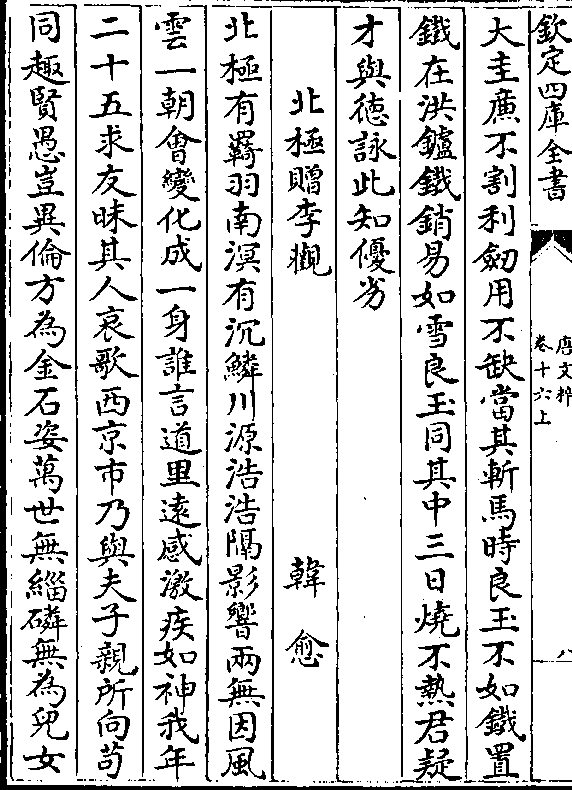 欽定四庫全書
唐文粹
卷十六上
八
大圭廉不割利劒用不缺當其斬馬時良玉不如鐵置
鐵在洪鑪鐵銷易如雪良玉同其中三日燒不熱君疑
才與徳詠此知優劣
北極贈李觀
韓愈
北極有羇羽南溟有沉鱗川源浩浩隔影響兩無因風
雲一朝㑹變化成一身誰言道里逺感激疾如神我年
二十五求友昧其人哀歌西京市乃與夫子親所向茍
同趣賢愚豈異倫方為金石姿萬世無緇磷無為兒女